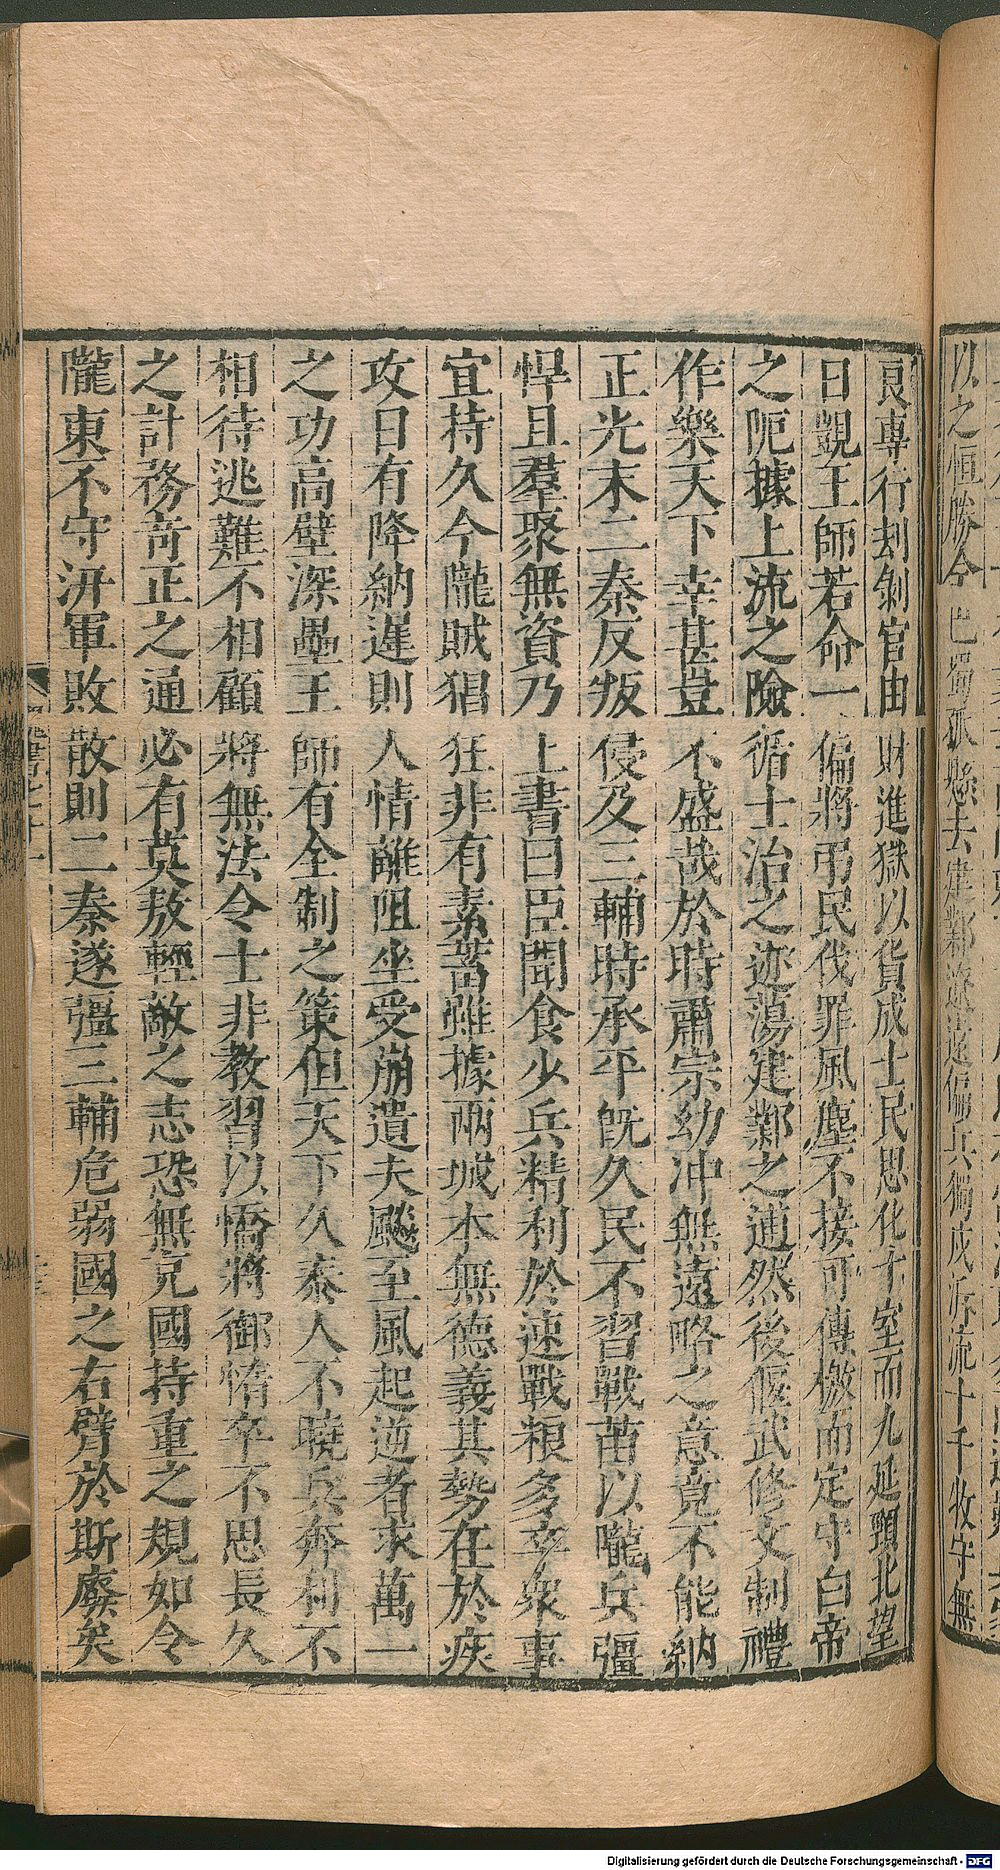 以之恒勝今巴蜀孤懸去建鄴遼遠偏兵獨戍泝流十千牧守無
良專行刦剝官由財進獄以貨成士民思化十室而九延頸北望
日覬王師若命一偏將弔民伐罪風塵不接可傳檄而定守白帝
之阨據上流之險循士治之迹蕩建鄴之逋然後偃武修文制禮
作樂天下幸甚豈不盛哉於時肅宗幼冲無遠略之意竟不能納
正光末二秦反叛侵及三輔時承平旣久民不習戰苗以隴兵彊
悍且羣聚無資乃上書曰臣聞食少兵精利於速戰粮多卒衆事
宜持久今隴賊猖狂非有素蓄雖據兩城本無德義其勢在於疾
攻日有降納遲則人情離阻坐受崩遺夫飈至風起逆者求萬一
之功高壁深壘王師有全制之策但天下久泰人不曉兵奔利不
相待逃難不相顧將無法令士非教習以憍將御惰卒不思長久
之計務竒正之通必有莫敖輕敵之志恐無充國持重之規如令
隴東不守汧軍敗散則二秦遂彊三輔危弱國之右臂於斯廢矣
Digitalisierung gefördert durch die Deutsche Forschungsgemeinschaft - DFG